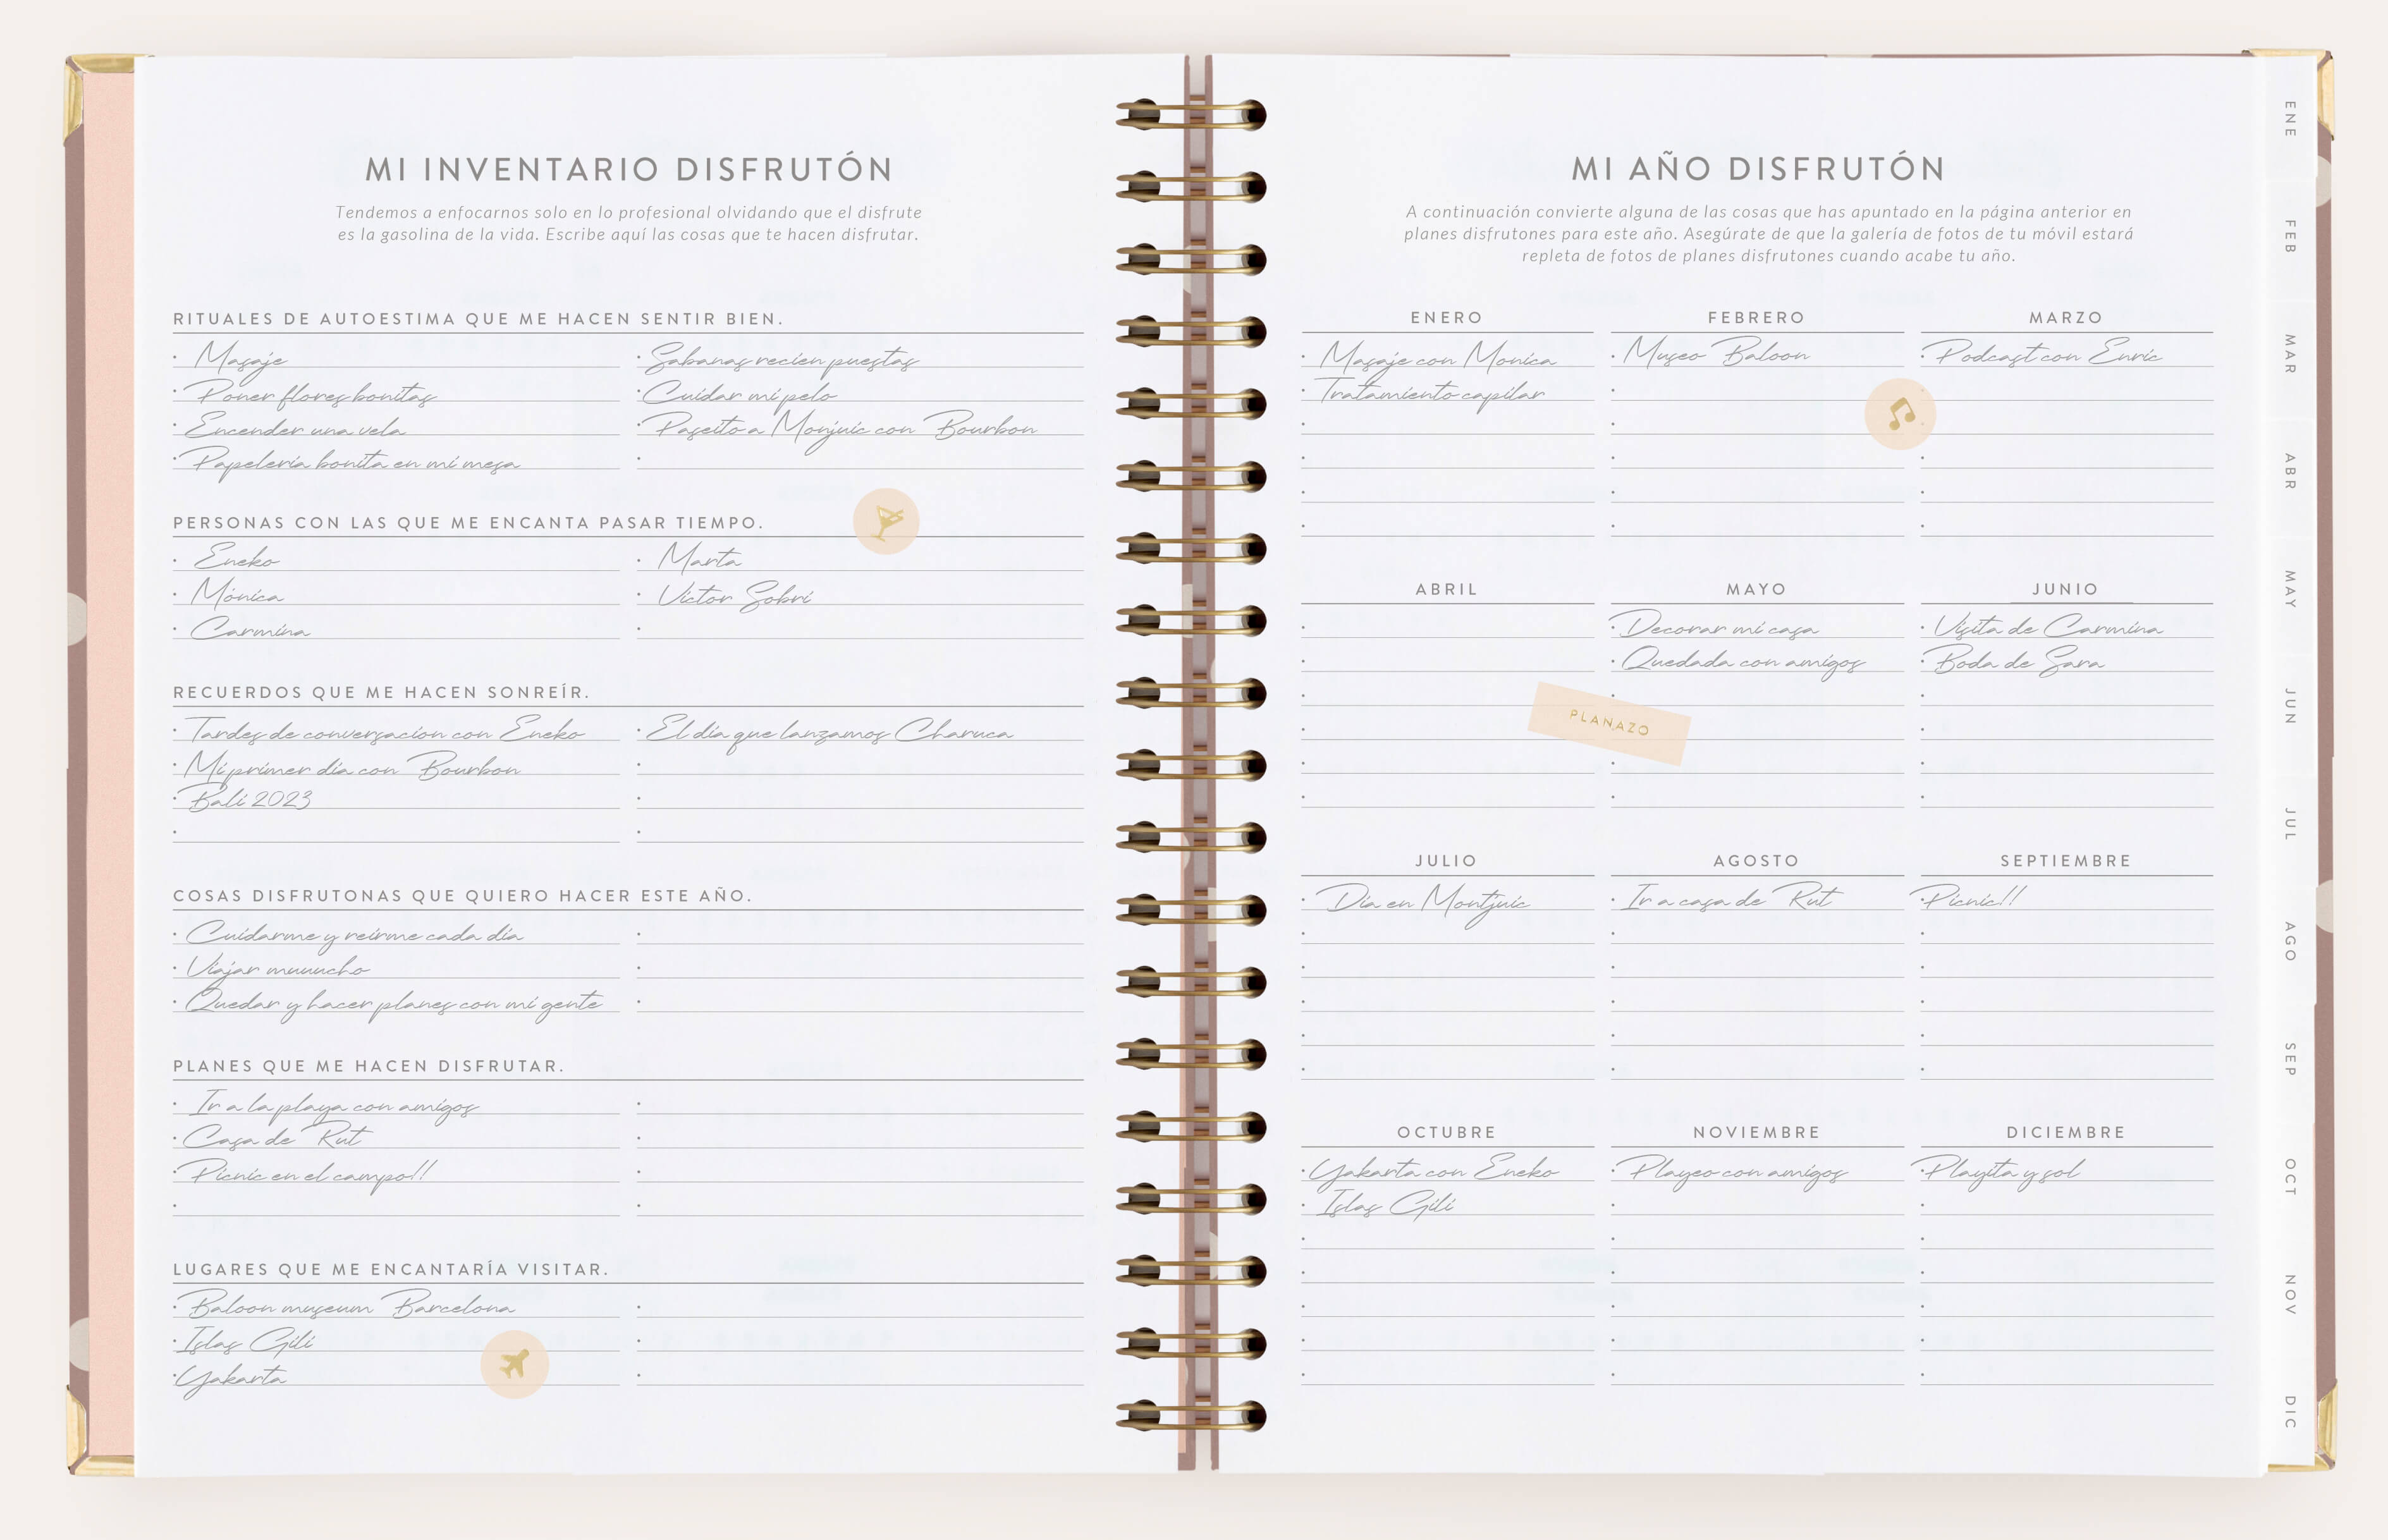 MI INVENTARIO DISFRUTÓN
Tendemos a enfocarnos solo en lo profesional olvidando que el disfrute
es la gasolina de la vida. Escribe aquí las cosas que te hacen disfrutar.
RITUALES DE AUTOESTIMA QUE ME HACEN SENTIR BIEN.
Masaje
Poner flores bonitas
Encender una vela
Papelería bonita en mi mesa
Sabanas recien puestas
Cuidar mi pelo
Paseito a Monjuic con Bourbon
PERSONAS CON LAS QUE ME ENCANTA PASAR TIEMPO.
Eneko
Mónica
Carmina
Marta
Victor Sobri
RECUERDOS QUE ME HACEN SONREÍR.
Tardes de conversacion con Eneko
Mi primer día con Bourbon
Bali 2023
El día que lanzamos Charuca
COSAS DISFRUTONAS QUE QUIERO HACER ESTE AÑO.
Cuidarme y reirme cada día
Viajar muuucho
Quedar y hacer planes con mi gente
PLANES QUE ME HACEN DISFRUTAR.
Ir a la playa con amigos
Casa de Rut
Picnic en el campo!!
LUGARES QUE ME ENCANTARÍA VISITAR.
Baloon museum Barcelona
Islas Gili
Yakarta
MI AÑO DISFRUTÓN
A continuación convierte alguna de las cosas que has apuntado en la página anterior en
planes disfrutones para este año. Asegúrate de que la galería de fotos de tu móvil estará
repleta de fotos de planes disfrutones cuando acabe tu año.
ENERO
Masaje con Monica
Tratamiento capilar
FEBRERO
Museo Baloon
MARZO
Podcast con Enric
ABRIL
MAYO
Decorar mi casa
Quedada con amigos
PLANAZO
JUNIO
Visita de Carmina
Boda de Sara
JULIO
Día en Montjuic
AGOSTO
Ir a casa de Rut
SEPTIEMBRE
Picnic!!
OCTUBRE
Yakarta con Eneko
Islas Gili
NOVIEMBRE
Playeo con amigos
DICIEMBRE
Playita y sol
ENE
FEB
MAR
ABR
MAY
JUN
JUL
AGO
SEP
OCT
NOV
DIC